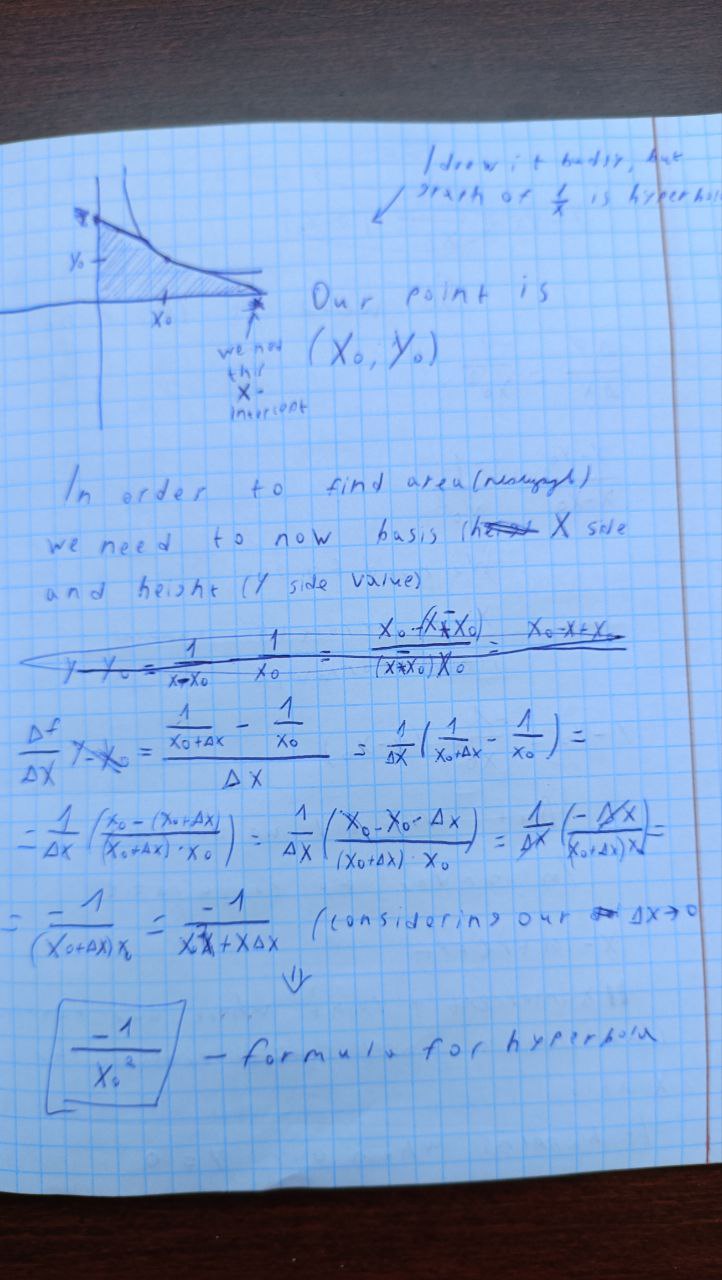 I drew it badly, but
graph of 1/x is hyperbol
y₀
x₀
we need
this
x-
intercept
Our point is
(x₀, y₀)
In order to find area (площадь)
we need to now basis ( X side
and height (Y side value)
y - y₀ = 1/(x-x₀) - 1/x₀ = (x₀-(x-x₀))/((x-x₀)x₀) = x₀-x+x₀
Δf/Δx = (1/(x₀+Δx) - 1/x₀)/Δx = 1/Δx (1/(x₀+Δx) - 1/x₀) =
= 1/Δx ((x₀-(x₀+Δx))/((x₀+Δx)·x₀)) = 1/Δx ((x₀-x₀-Δx)/((x₀+Δx)·x₀)) = 1/Δx (-Δx/((x₀+Δx)x)) =
= -1/((x₀+Δx)x₀) = -1/(x₀²+xΔx) (considering our Δx→0
⇓
-1/x₀² - formula for hyperbola